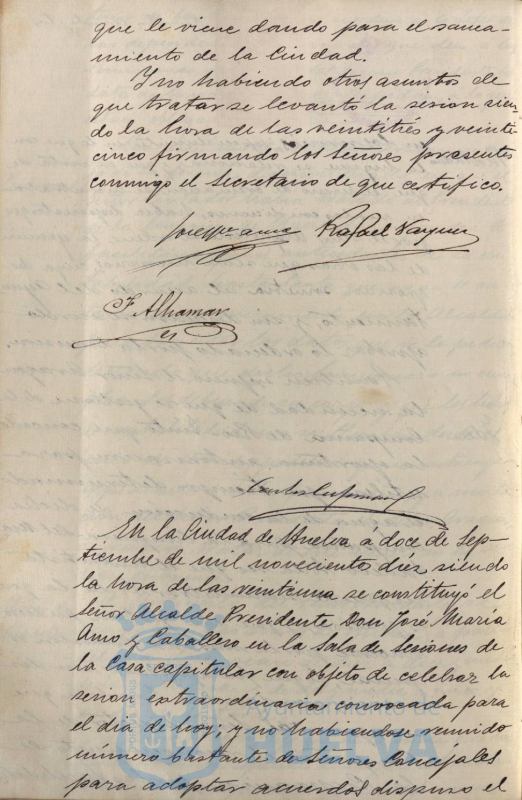 que le viene dando para el sanea-
miento de la Ciudad.
Y no habiendo otros asuntos de
que tratar se levantó la sesion sien-
do la hora de las veintitrés y veinte
cinco firmando los Señores presentes
conmigo el Secretario de que certifico.
Rafael Vazquez
F. Alhamar
En la Ciudad de Huelva á doce de Sep-
tiembre de mil novecientos diéz siendo
la hora de las veintiuna se constituyó el
Señor Alcalde Presidente Don José María
Amo y Caballero en la Sala de Sesiones de
la Casa capitular con objeto de celebrar la
sesion extraordinaria convocada para
el dia de hoy; y no habiendose reunido
número bastante de Señores Concejales
para adoptar acuerdos dispuso el
Ayuntamiento de
HUELVA